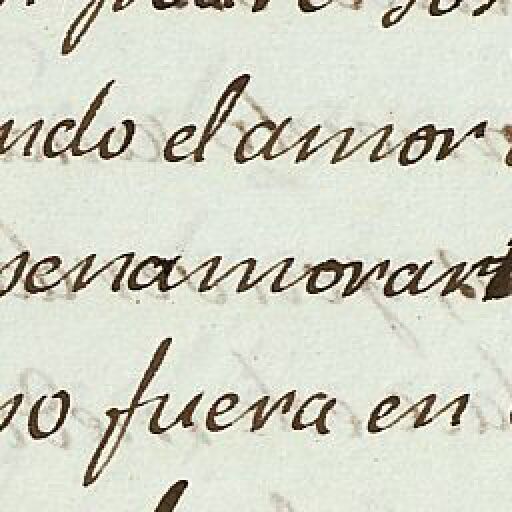 ndo el amor
enamorar
no fuera en